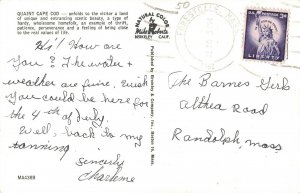 QUAINT CAPE COD — unfolds to the visitor a land
of unique and entrancing scenic beauty, a type of
hardy, wholesome homefolk, an example of thrift,
patience, perseverance and a feeling of being close
to the real values of life.
Hi! How are
you? The water +
weather are fine. Wish
you could be here for
the 4th of July.
Well, back to my
tanning
Sincerly
Charlene
MA438B
NATURAL COLOR
Mike Roberts
BERKELEY
CALIF.
50
3¢
LIBERTY
The Barnes Girls
Althea Road
Randolph, Mass